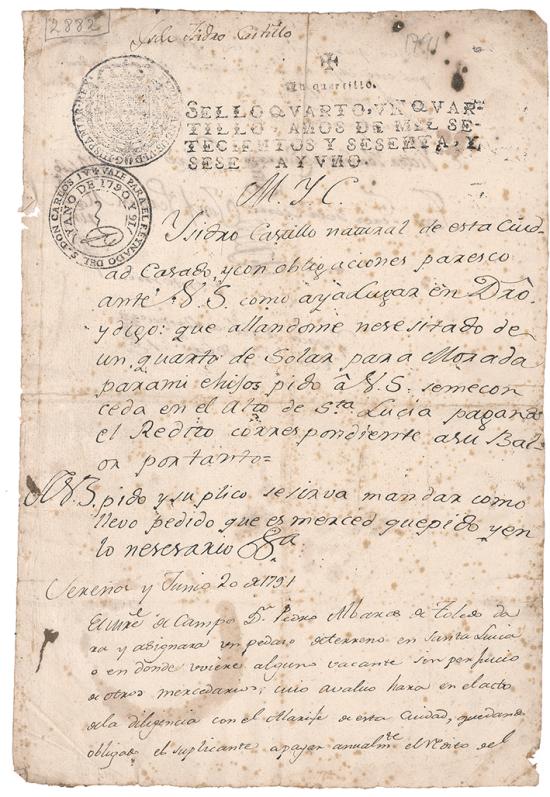 2882
Isidro Castillo
1791
Un quartillo.
SELLO QVARTO, VN QVAR-
TILLO, AÑOS DE MIL SE-
TECIENTOS Y SESENTA, Y
SESENTA Y VNO.
VALE PARA EL REYNADO DEL S. DON CARLOS IV
AÑO DE 1790 Y 91
M. Y C.
Ysidro Castillo natural de esta Ciud-
ad Casado, y con obligaciones paresco
ante V.S. como aya Lugar en Drô
y digo: que allandome nesesitado de
un quarto de Solar para Morada
para mi e hijos pido â V.S. se me con
ceda en el Alto de Sta Lucia pagando
el Redito correspondiente a su Bal-
or por tanto=
A V.S. pido y suplico se sirva mandar como
llevo pedido que es merced que pido y en
lo nesesario &a
Serena y Junio 20 de 1791
El Mre de Campo Dn Pedro Albares de Toledo da
ra y asignara un pedaso de terreno en Santa Lucia
o en donde uviere alguno vacante sin perjuicio
de otros mercedarios; cuio avaluo hara en el acto
de la diligencia con el Alarife de esta Ciudad, quedando
obligado el suplicante a pagar anualmte el redito del